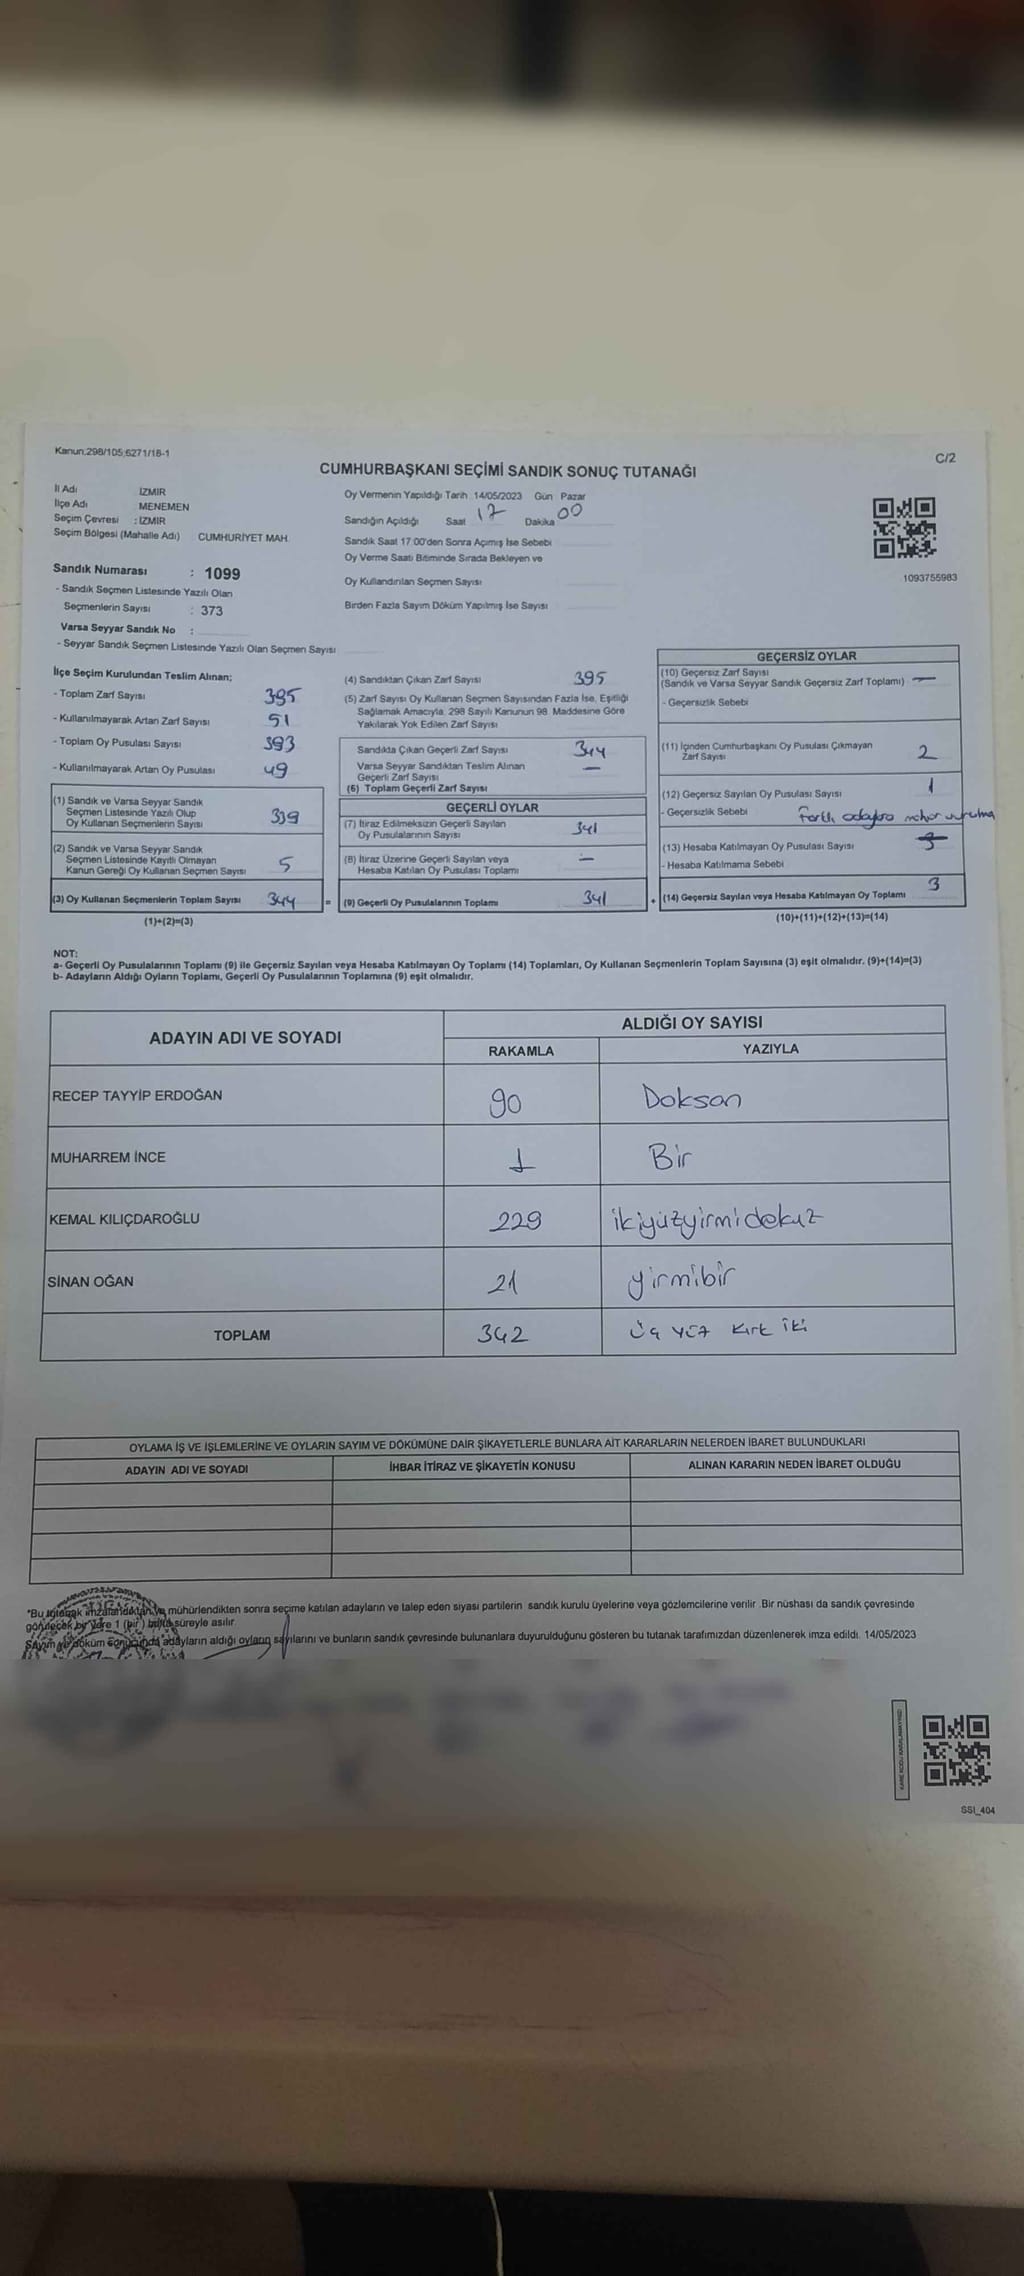 Kanun:298/105;6271/18-1
C/2
CUMHURBAŞKANI SEÇİMİ SANDIK SONUÇ TUTANAĞI
İl Adı İZMİR
İlçe Adı MENEMEN
Seçim Çevresi : İZMİR
Seçim Bölgesi (Mahalle Adı) CUMHURİYET MAH.
Oy Vermenin Yapıldığı Tarih 14/05/2023 Gün Pazar
Sandığın Açıldığı Saat 17 Dakika 00
Sandık Saat 17:00'den Sonra Açımış İse Sebebi
Oy Verme Saati Bitiminde Sırada Bekleyen ve
Oy Kullandırılan Seçmen Sayısı
Birden Fazla Sayım Döküm Yapılmış İse Sayısı
1093755983
Sandık Numarası : 1099
- Sandık Seçmen Listesinde Yazılı Olan
Seçmenlerin Sayısı : 373
Varsa Seyyar Sandık No :
- Seyyar Sandık Seçmen Listesinde Yazılı Olan Seçmen Sayısı
İlçe Seçim Kurulundan Teslim Alınan;
- Toplam Zarf Sayısı 395
- Kullanılmayarak Artan Zarf Sayısı 51
- Toplam Oy Pusulası Sayısı 393
- Kullanılmayarak Artan Oy Pusulası 49
(1) Sandık ve Varsa Seyyar Sandık
Seçmen Listesinde Yazılı Olup
Oy Kullanan Seçmenlerin Sayısı 339
(2) Sandık ve Varsa Seyyar Sandık
Seçmen Listesinde Kayıtlı Olmayan
Kanun Gereği Oy Kullanan Seçmen Sayısı 5
(3) Oy Kullanan Seçmenlerin Toplam Sayısı 344
(1)+(2)=(3)
(4) Sandıktan Çıkan Zarf Sayısı 395
(5) Zarf Sayısı Oy Kullanan Seçmen Sayısından Fazla İse, Eşitliği
Sağlamak Amacıyla, 298 Sayılı Kanunun 98. Maddesine Göre
Yakılarak Yok Edilen Zarf Sayısı
Sandıkta Çıkan Geçerli Zarf Sayısı 344
Varsa Seyyar Sandıktan Teslim Alınan
Geçerli Zarf Sayısı —
(6) Toplam Geçerli Zarf Sayısı
GEÇERLİ OYLAR
(7) İtiraz Edilmeksizin Geçerli Sayılan
Oy Pusulalarının Sayısı 341
(8) İtiraz Üzerine Geçerli Sayılan veya
Hesaba Katılan Oy Pusulası Toplamı —
= (9) Geçerli Oy Pusulalarının Toplamı 341
GEÇERSİZ OYLAR
(10) Geçersiz Zarf Sayısı
(Sandık ve Varsa Seyyar Sandık Geçersiz Zarf Toplamı) —
- Geçersizlik Sebebi
(11) İçinden Cumhurbaşkanı Oy Pusulası Çıkmayan
Zarf Sayısı 2
(12) Geçersiz Sayılan Oy Pusulası Sayısı 1
- Geçersizlik Sebebi Farklı adaylara mühür vurulma
(13) Hesaba Katılmayan Oy Pusulası Sayısı 3
- Hesaba Katılmama Sebebi
+ (14) Geçersiz Sayılan veya Hesaba Katılmayan Oy Toplamı 3
(10)+(11)+(12)+(13)=(14)
NOT:
a- Geçerli Oy Pusulalarının Toplamı (9) ile Geçersiz Sayılan veya Hesaba Katılmayan Oy Toplamı (14) Toplamları, Oy Kullanan Seçmenlerin Toplam Sayısına (3) eşit olmalıdır. (9)+(14)=(3)
b- Adayların Aldığı Oyların Toplamı, Geçerli Oy Pusulalarının Toplamına (9) eşit olmalıdır.
ADAYIN ADI VE SOYADI
ALDIĞI OY SAYISI
RAKAMLA YAZIYLA
RECEP TAYYİP ERDOĞAN 90 Doksan
MUHARREM İNCE 1 Bir
KEMAL KILIÇDAROĞLU 229 ikiyüzyirmidokuz
SİNAN OĞAN 21 yirmibir
TOPLAM 342 Üç yüz kırk iki
OYLAMA İŞ VE İŞLEMLERİNE VE OYLARIN SAYIM VE DÖKÜMÜNE DAİR ŞİKAYETLERLE BUNLARA AİT KARARLARIN NELERDEN İBARET BULUNDUKLARI
ADAYIN ADI VE SOYADI İHBAR İTİRAZ VE ŞİKAYETİN KONUSU ALINAN KARARIN NEDEN İBARET OLDUĞU
*Bu tutanak imzalandıktan ve mühürlendikten sonra seçime katılan adayların ve talep eden siyasi partilerin sandık kurulu üyelerine veya gözlemcilerine verilir. Bir nüshası da sandık çevresinde
görülecek bir yere 1 (bir) hafta süreyle asılır.
Sayım ve döküm sonucunda adayların aldığı oyların sayılarını ve bunların sandık çevresinde bulunanlara duyurulduğunu gösteren bu tutanak tarafımızdan düzenlenerek imza edildi. 14/05/2023
KARE KODU KARALAMAYINIZ!
SSI_404